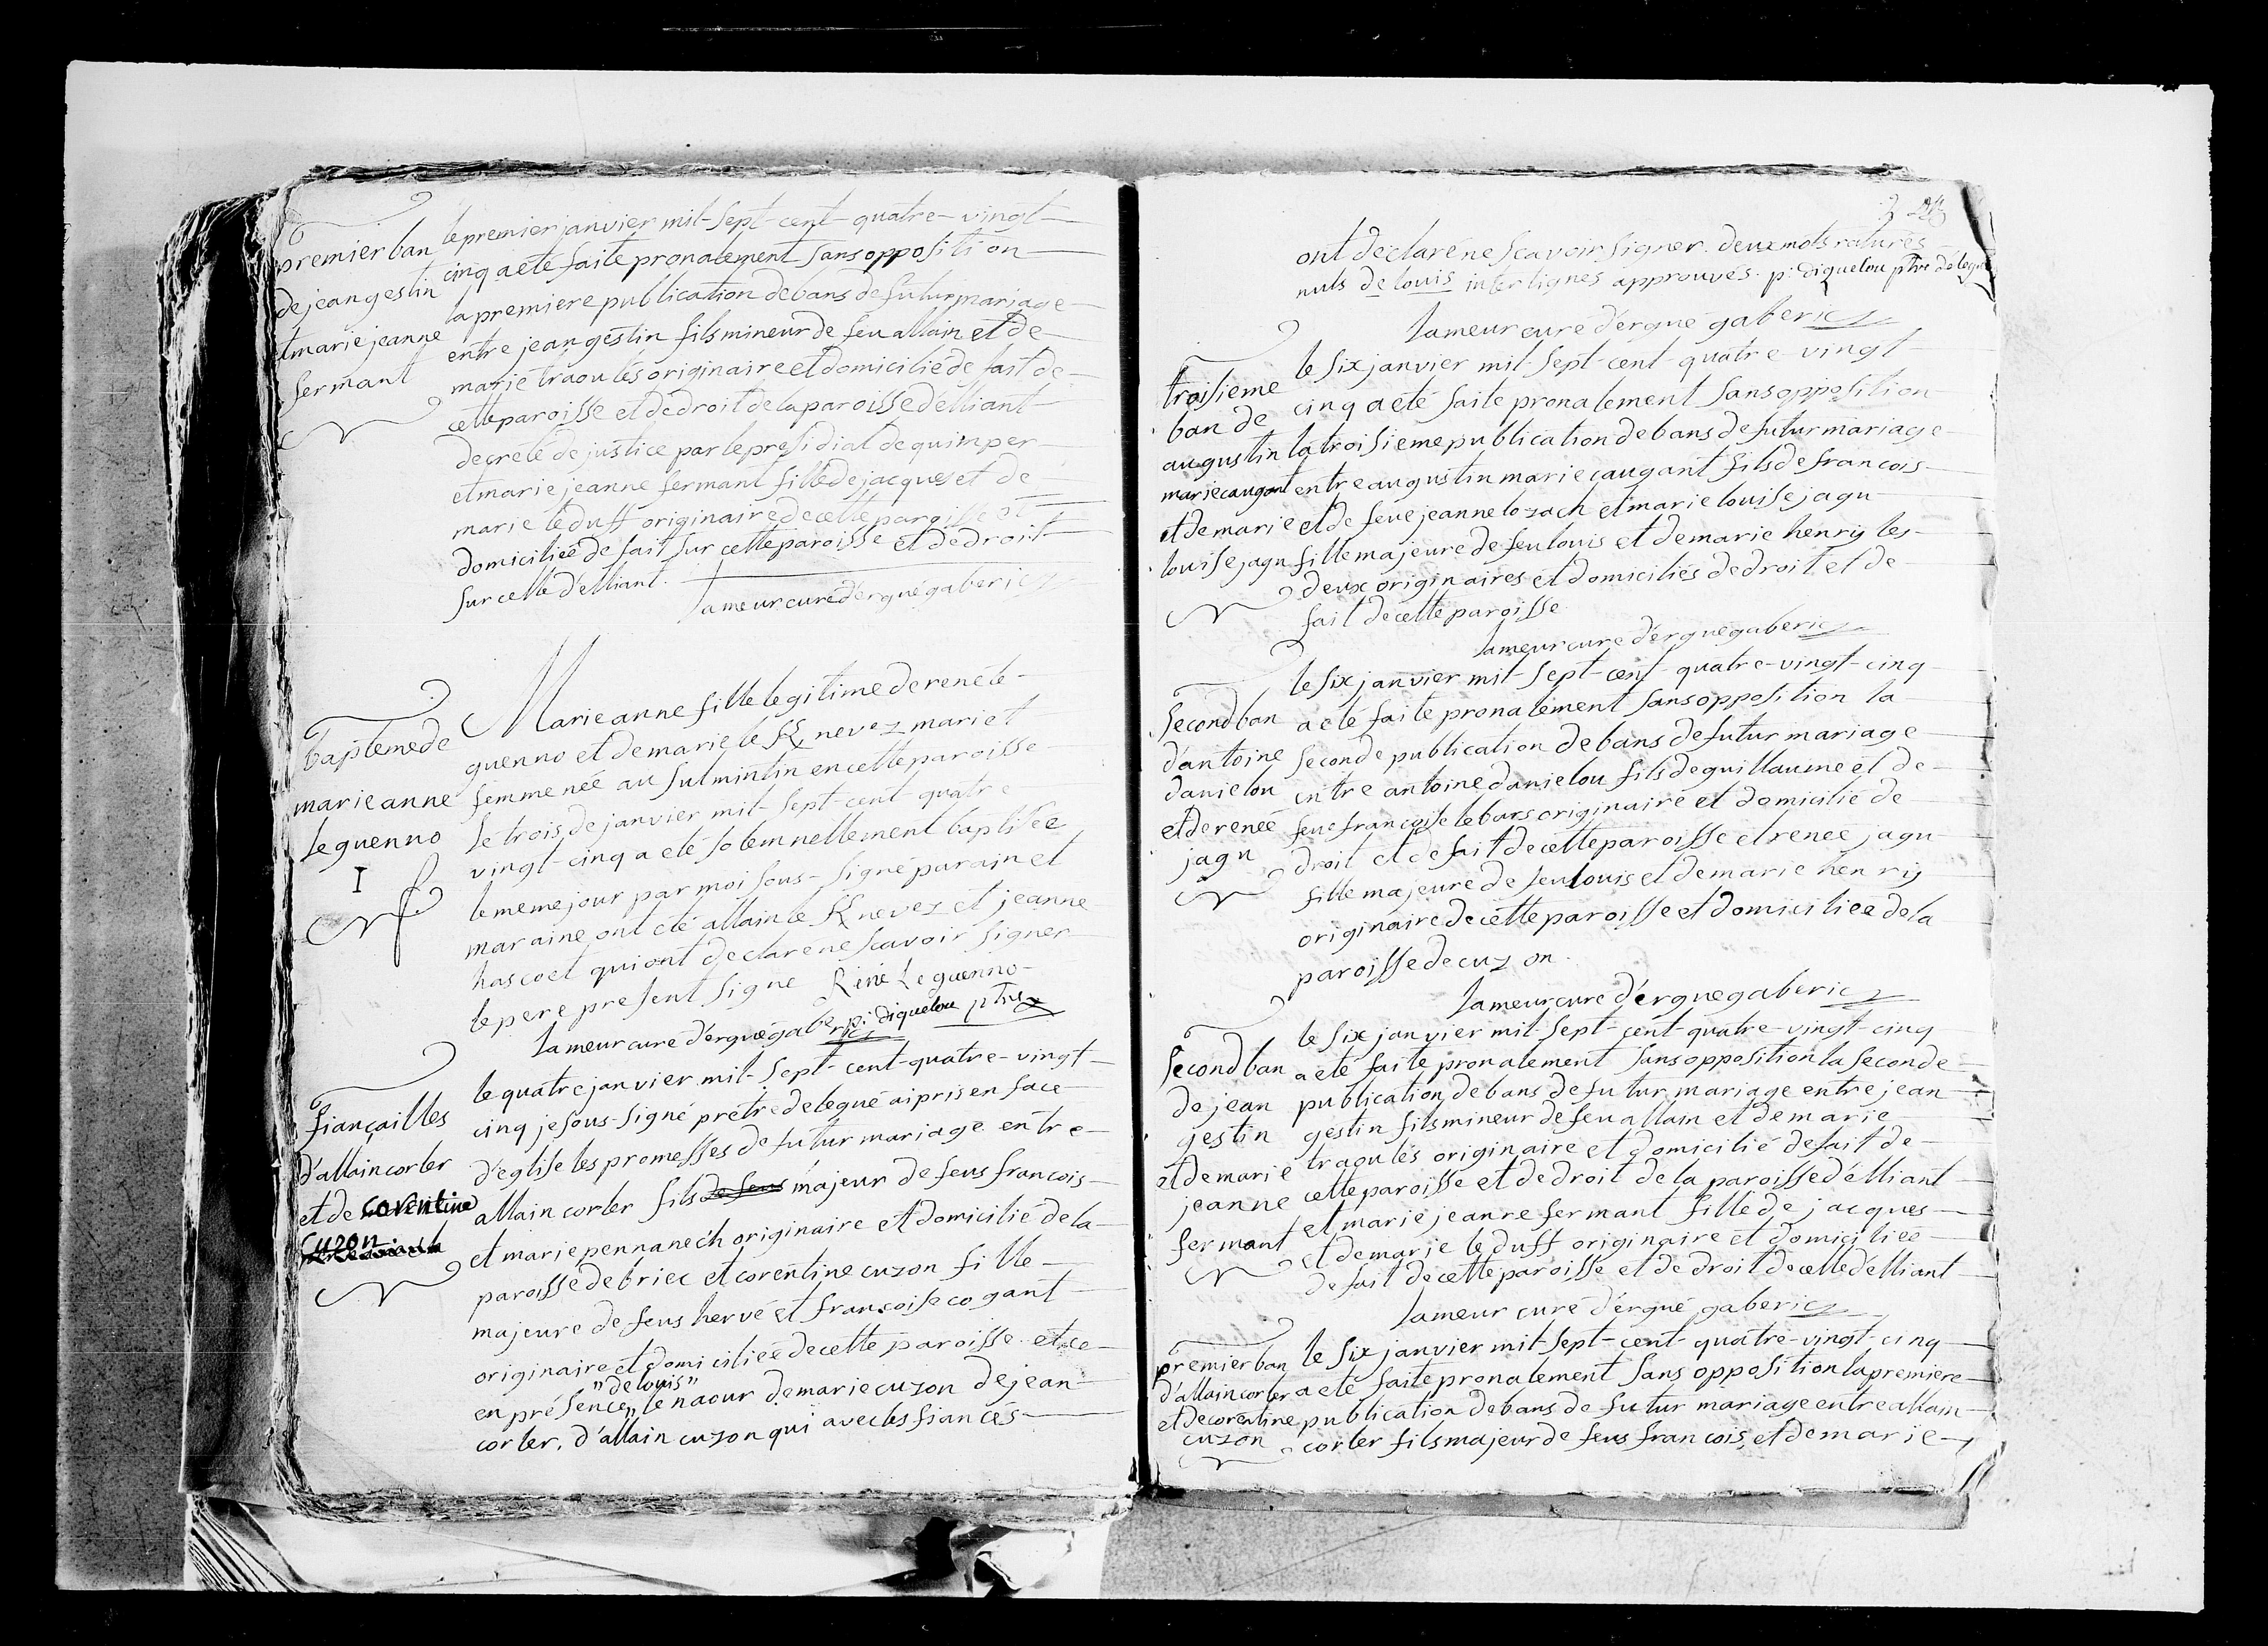 premier ban
de jean gestin
et marie jeanne
fermant
le premier janvier mil-sept-cent-quatre-vingt
cinq a eté faite pronalement sans opposition
la premiere publication de bans de futur mariage
entre jean gestin fils mineur de feu allain et de
marie traoulés originaire et domicilié de fait de
cette paroisse et de droit de la paroisse d'elliant
decrété de justice par le presidial de quimper
et marie jeanne fermant fille de jacques et de
marie le duff originaire de cette paroisse et
domiciliée de fait sur cette paroisse et de droit
sur celle d'elliant.
Lameur curé d'ergué gaberic
baptême de
marie anne
le guenno
I
Marie anne fille legitime de rené le
guenno et de marie le K nevez mari et
femme née au sulmintin en cette paroisse
le trois de janvier mil-sept-cent quatre
vingt-cinq a eté solemnellement baptisée
le meme jour par moi sous-signé parain et
maraine ont été allain le K nevez et jeanne
hascoet qui ont declare ne scavoir signer
le pere present signe René Le guenno
Lameur curé d'ergué gaberic p: diquelou ptre
fiançailles
d'allain corler
et de corentine
cuzon.
le quatre janvier mil-sept-cent-quatre-vingt
cinq je sous-signé prêtre delegué ai pris en face
d'eglise les promesses de futur mariage entre
allain corler fils de feus majeur de feus francois
et marie pennanec'h originaire et domicilié de la
paroisse de briec et corentine cuzon fille
majeure de feus hervé et françoise cogant
originaire et domiciliée de cette paroisse et ce
"de louis"
en présence,, le naour de marie cuzon de jean
corler, d'allain cuzon qui avec les fiancés
ont declaré ne scavoir signer. deux mots raturés
nuls de louis interlignés approuvés. p: diquelou ptre délegué
Lameur curé d'ergué gaberic
troisieme
ban de
augustin
marie caugant
et de marie
louise jagu
le six janvier mil-sept-cent-quatre vingt
cinq a eté faite pronalement sans opposition
la troisieme publication de bans de futur mariage
entre augustin marie caugant fils de francois
et de feue jeanne lozach et marie louise jagu
fille majeure de feu louis et de marie henry les
deux originaires et domiciliés de droit et de
fait de cette paroisse
Lameur curé d'ergué gaberic
second ban
d'antoine
danielou
et de renée
jagu
le six janvier mil-sept-cent-quatre-vingt-cinq
a eté faite pronalement sans opposition la
seconde publication de bans de futur mariage
entre antoine danielou fils de guillaume et de
feue françoise le bars originaire et domicilié de
droit et de fait de cette paroisse et renée jagu
fille majeure de feu louis et de marie henry
originaire de cette paroisse et domiciliée de la
paroisse de cuzon.
Lameur curé d'ergué gaberic
second ban
de jean
gestin
et de marie
jeanne
fermant
le six janvier mil-sept-cent-quatre-vingt-cinq
a eté faite pronalement sans opposition la seconde
publication de bans de futur mariage entre jean
gestin fils mineur de feu allain et de marie
traoulés originaire et domicilié de fait de
cette paroisse et de droit de la paroisse d'elliant
et marie jeanne fermant fille de jacques
et de marie le duff originaire et domiciliée
de fait de cette paroisse et de droit de celle d'elliant
Lameur curé d'ergué gaberic
premier ban
d'allain corler
et de corentine
cuzon
le six janvier mil-sept-cent-quatre-vingt-cinq
a eté faite pronalement sans opposition la premiere
publication de bans de futur mariage entre allain
corler fils majeur de feus francois, et de marie